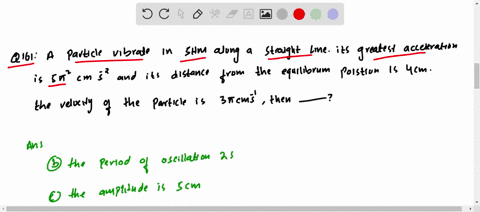 Q161: A particle vibrate in SHM along a straight line. its greatest acceleration
is 5π² cm s⁻² and its distance from the equilibrium poistion is 4cm.
the velocity of the particle is 3π cm s⁻¹, then ____ ?
Ans
ⓑ the period of oscillation 2s
ⓒ the amplitude is 5cm